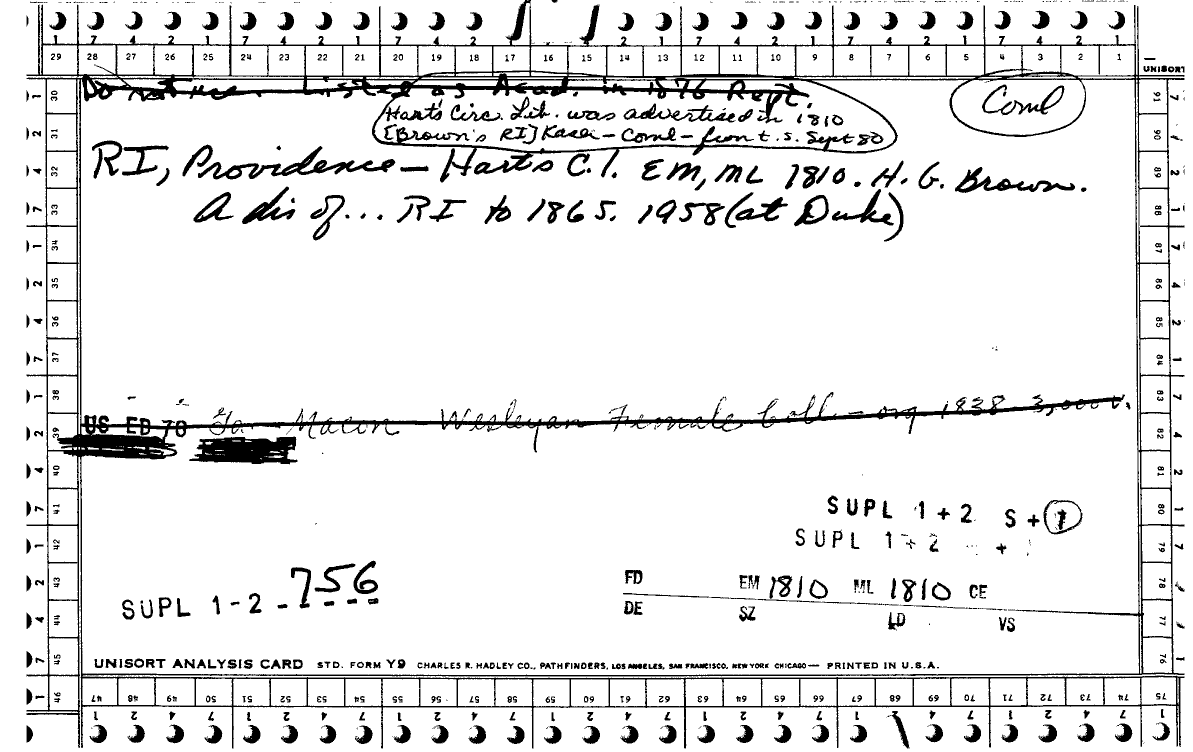 1 7 4 2 1 7 4 2 1 7 4 2 1 7 4 2 1 7 4 2 1 7 4 2 1
29 28 27 26 25 24 23 22 21 20 19 18 17 16 15 14 13 12 11 10 9 8 7 6 5 4 3 2 1
UNISORT
Do not use. Listed as Acad. in 1876 Rept.
Hart's Circ. Lib. was advertised in 1810
[Brown's RI] Kaser - Coml - from t.s. Sept 80
Coml
RI, Providence - Hart's C.l. EM, ML 1810. H. G. Brown.
A dis of... RI to 1865. 1958 (at Duke)
US ED 76 Ga Macon Wesleyan Female Coll - org 1838 3,000 v.
SUPL 1 + 2 S + 7
SUPL 1 + 2 +
SUPL 1-2 - 756
FD EM 1810 ML 1810 CE
DE SZ LD VS
UNISORT ANALYSIS CARD STD. FORM Y9 CHARLES R. HADLEY CO., PATHFINDERS, LOS ANGELES, SAN FRANCISCO, NEW YORK CHICAGO — PRINTED IN U.S.A.
30 31 32 33 34 35 36 37 38 39 40 41 42 43 44 45 46
47 48 49 50 51 52 53 54 55 56 57 58 59 60 61 62 63 64 65 66 67 68 69 70 71 72 73 74 75
91 90 89 88 87 86 85 84 83 82 81 80 79 78 77 76